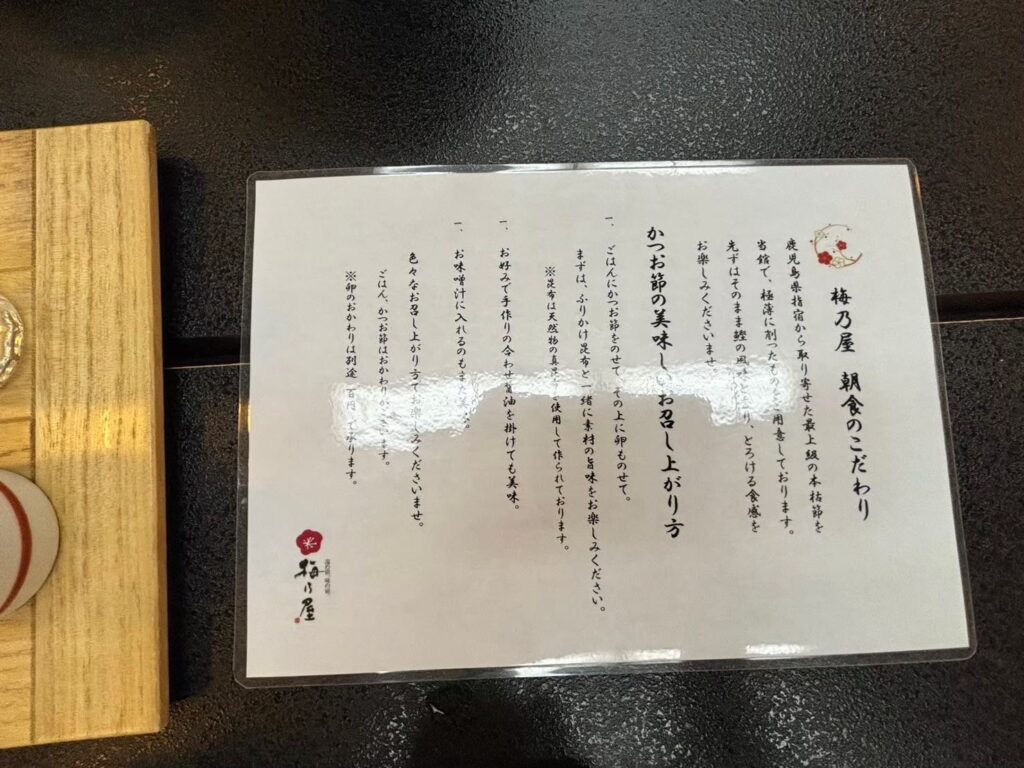 梅乃屋 朝食のこだわり
鹿児島県指宿から取り寄せた最上級の本枯節を
当館で、極薄に削ったものをご用意しております。
先ずはそのまま鰹の風味と香り、とろける食感を
お楽しみくださいませ。
かつお節の美味しいお召し上がり方
一、ごはんにかつお節をのせて、その上に卵ものせて。
まずは、ふりかけ昆布と一緒に素材の旨味をお楽しみください。
※昆布は天然物の真昆布を使用して作られております。
一、お好みで手作りの合わせ醤油を掛けても美味。
一、お味噌汁に入れるのもまた美味。
色々なお召し上がり方でお楽しみくださいませ。
ごはん、かつお節はおかわりができます。
※卵のおかわりは別途 百円 で承ります。
梅乃屋